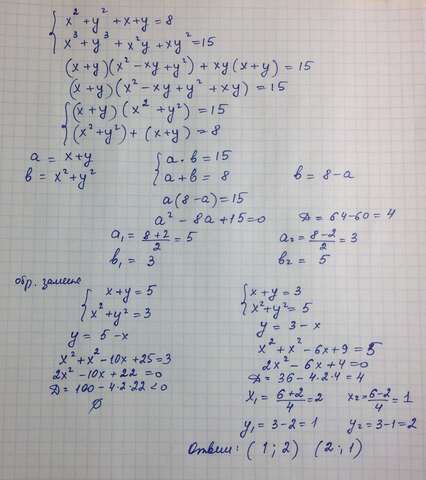 { x² + y² + x + y = 8
x³ + y³ + x²y + xy² = 15
(x+y)(x² - xy + y²) + xy(x+y) = 15
(x+y)(x² - xy + y² + xy) = 15
{ (x+y)(x² + y²) = 15
(x² + y²) + (x+y) = 8
a = x+y
b = x² + y²
{ a · b = 15
a + b = 8
b = 8 - a
a(8-a) = 15
a² - 8a + 15 = 0
D = 64 - 60 = 4
a₁ = (8+2)/2 = 5
a₂ = (8-2)/2 = 3
b₁ = 3
b₂ = 5
обр. замена
{ x+y = 5
x² + y² = 3
y = 5 - x
x² + x² - 10x + 25 = 3
2x² - 10x + 22 = 0
D = 100 - 4·2·22 < 0
∅
{ x+y = 3
x² + y² = 5
y = 3 - x
x² + x² - 6x + 9 = 5
2x² - 6x + 4 = 0
D = 36 - 4·2·4 = 4
x₁ = (6+2)/4 = 2
x₂ = (6-2)/4 = 1
y₁ = 3 - 2 = 1
y₂ = 3 - 1 = 2
Ответ: (1; 2) (2; 1)